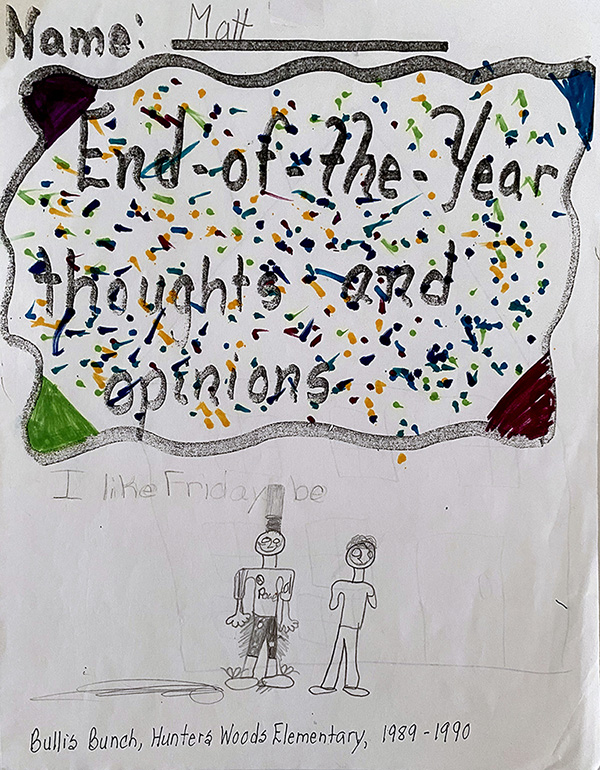 Name: Matt
End-of-the-Year
thoughts and
opinions
I like Friday be
Bullis Bunch, Hunters Woods Elementary, 1989-1990